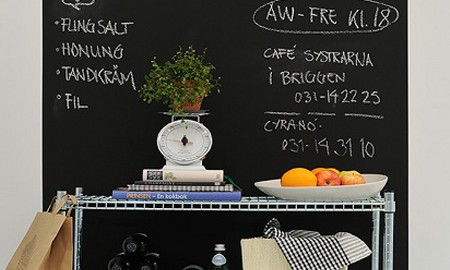 · FLINGSALT
· HONUNG
· TANDKRÄM
· FIL
AW - FRE Kl. 18
CAFÉ SYSTRARNA
i BRIGGEN
031-142225
CYRANO:
031-14 31 10
PRINSEN - En kokbok